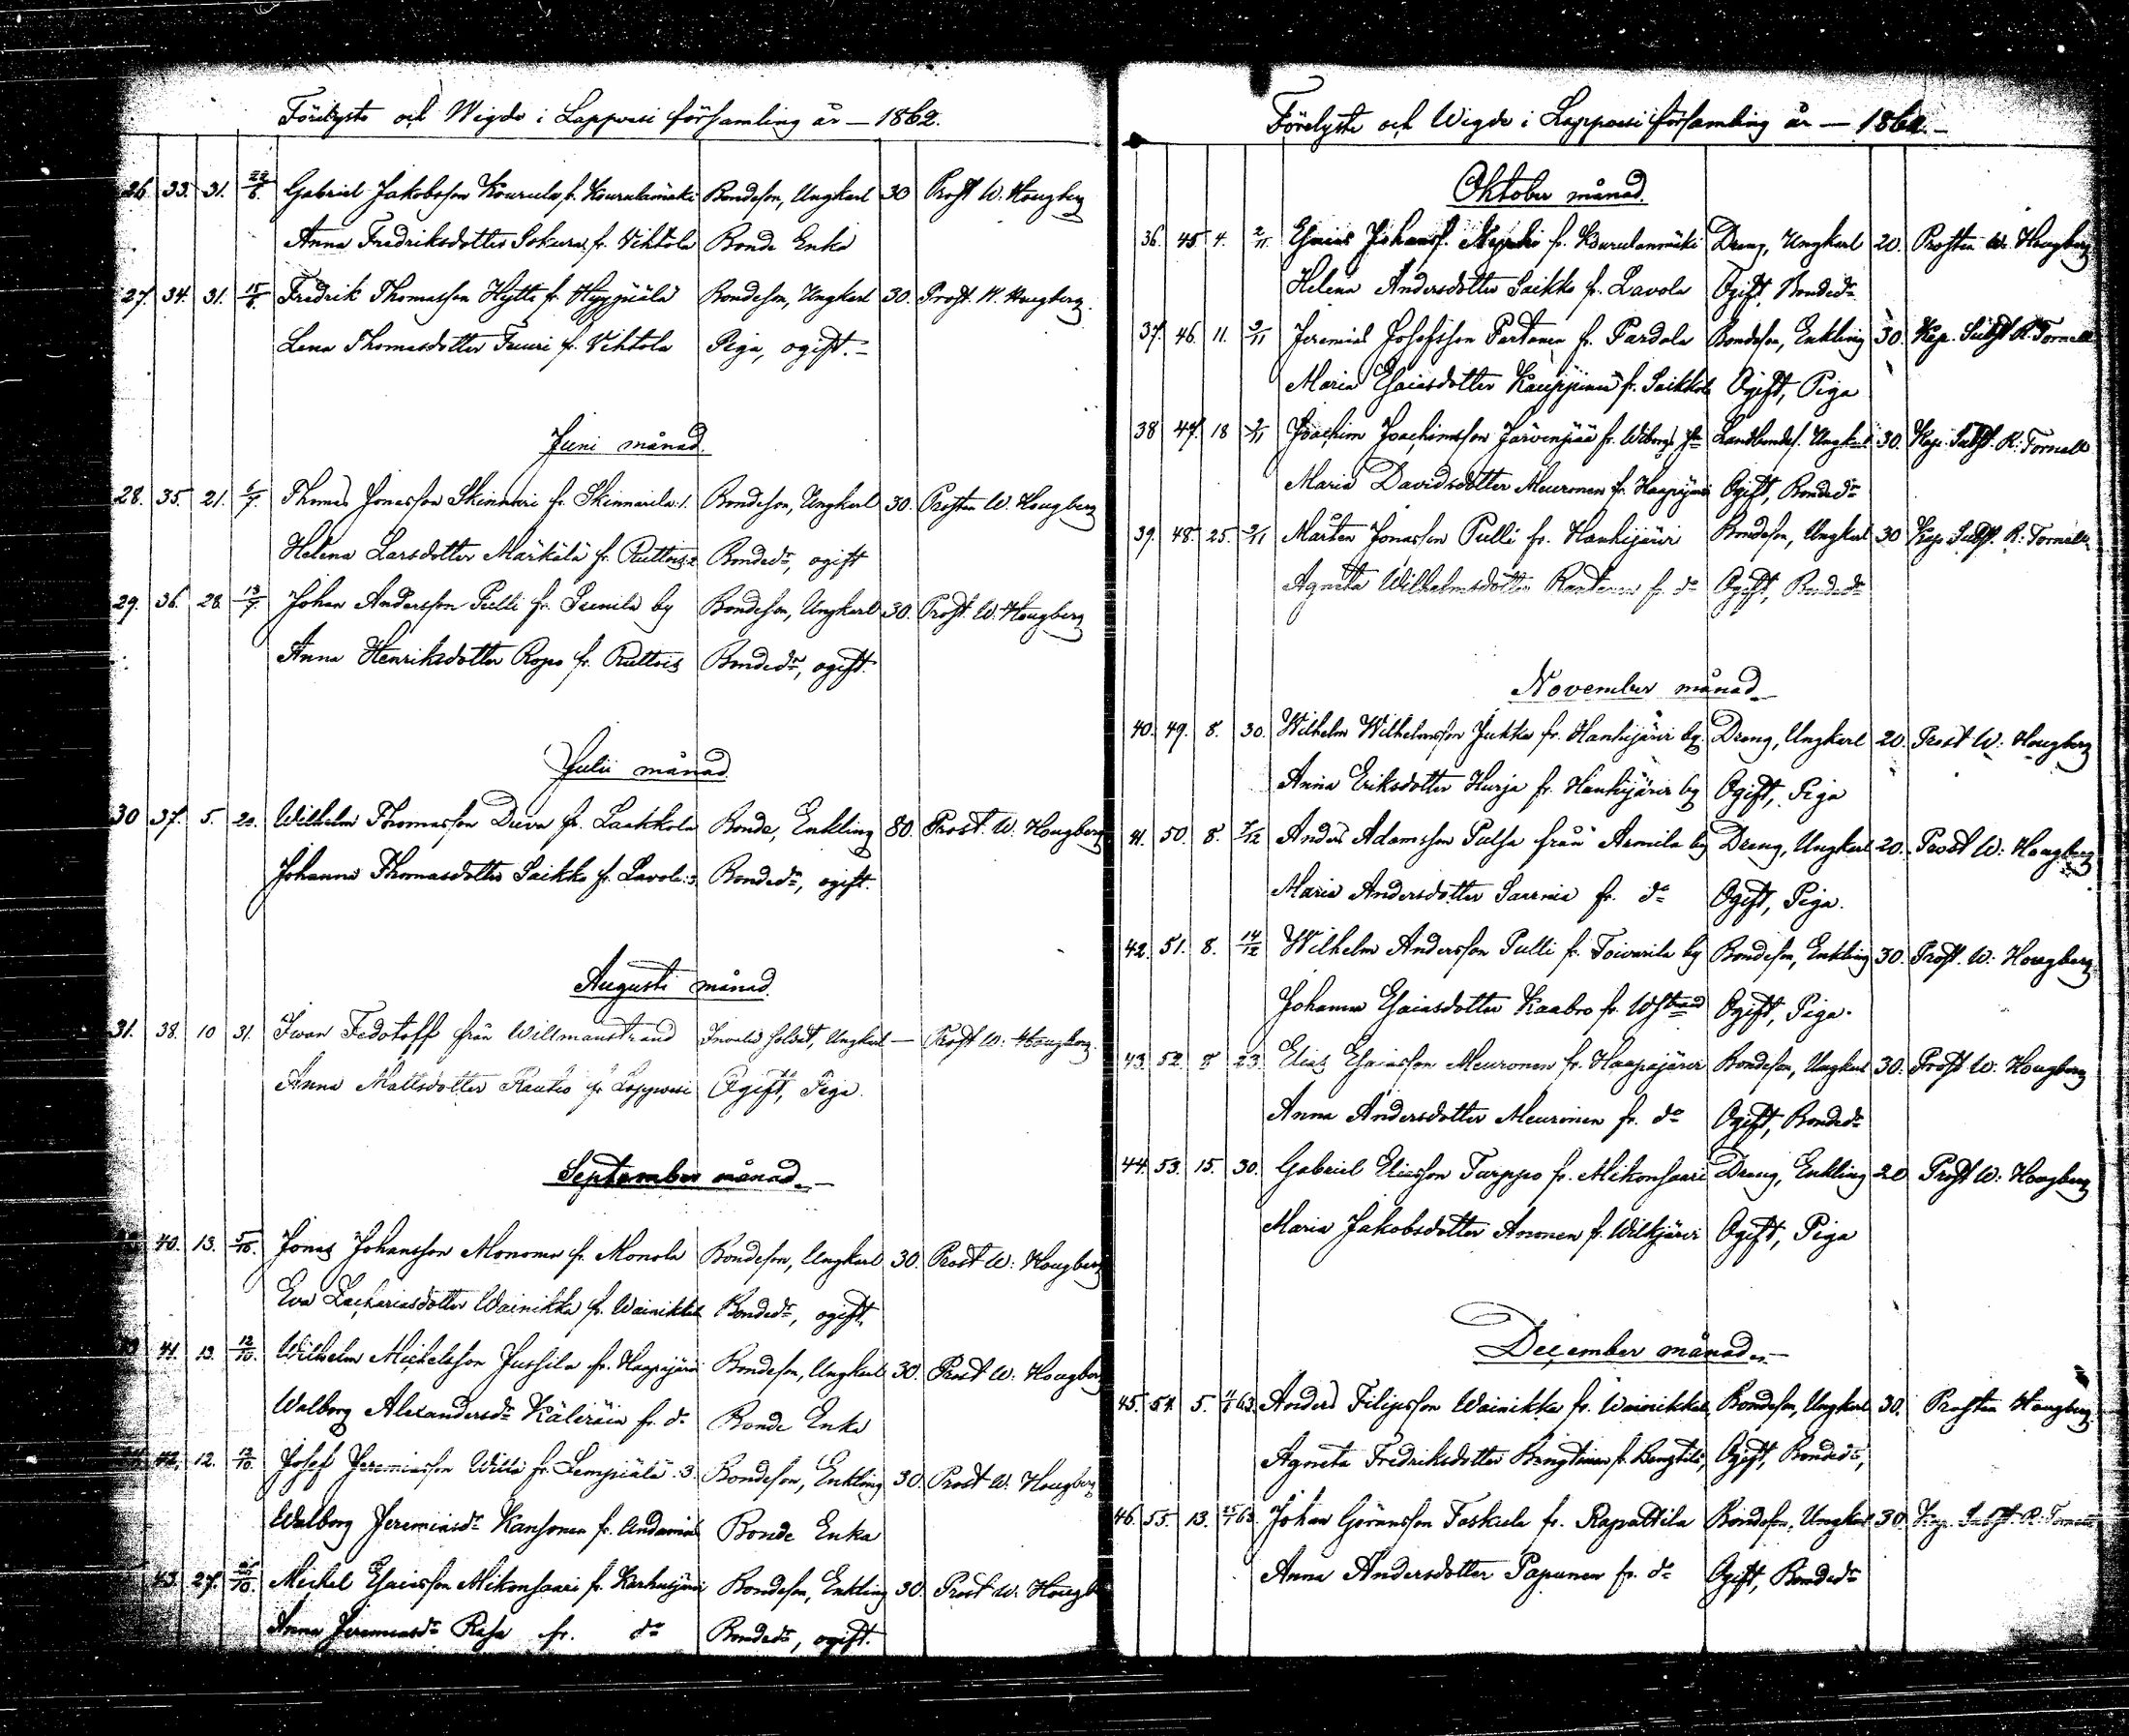 Förelyste och Wigde i Lappvesi församling år — 1862.
26. 33. 31. 22/6. Gabriel Jakobsson Kourula fr. Kourulanmäki Bondeson, Ungkarl 30 Prost W. Hougberg
Anna Fredriksdotter Sokura fr. Vihtola Bonde Enka
27. 34. 31. 15/6. Fredrik Thomasson Hytti fr. Hyypiälä Bondeson, Ungkarl 30. Prost. W. Hougberg.
Lena Thomasdotter Tuuri fr. Vihtola Piga, ogift.
Juni månad.
28. 35. 21. 6/7. Thomas Jonasson Skinnari fr. Skinnarila:1. Bondeson, Ungkarl 30. Prosten W. Hougberg
Helena Larsdotter Märkälä fr. Ruttois:2 Bondedr, ogift
29. 36. 28. 13/7. Johan Andersson Pulli fr. Sunila by Bondeson, Ungkarl 30. Prost. W. Hougberg
Anna Henriksdotter Ropo fr. Ruttois Bondedr, ogift.
Julii månad.
30 37. 5. 20. Wilhelm Thomasson Duva fr. Laakkola Bonde, Enkling 80. Prost. W. Hougberg
Johanna Thomasdotter Saikko fr. Lavola:3. Bondedr, ogift.
Augusti månad.
31. 38. 10 31. Iwan Fedotoff från Willmanstrand Invalid soldat, Ungkarl — Prost W. Hougberg.
Anna Mattsdotter Rautio fr Lappvesi Ogift, Piga.
September månad.
40. 13. 5/10. Jonas Johansson Mononen fr. Monola Bondeson, Ungkarl 30. Prost W: Hougberg
Eva Zachariasdotter Wainikka fr. Wainikkala Bondedr, ogift.
41. 13. 12/10. Wilhelm Michelsson Jussila fr. Haapajärvi Bondeson, Ungkarl 30. Prost W: Hougberg
Walborg Alexandersdr Käleräin fr. do Bonde Enka
42. 12. 12/10. Josef Jeremiasson Willi fr. Lempiälä:3. Bondeson, Enkling 30. Prost W. Hougberg
Walborg Jeremiasdr Kansonen fr. Bonde Enka
43. 27. 26/10. Michel Esaiasson Mikonsaari fr. Karhusjärvi Bondeson, Enkling 30. Prost W: Hougb
Anna Jeremiasdr Rasa fr. do Bondedr, ogift.
Förelyste och Wigde i Lappvesi församling år — 1862.
Oktober månad.
36. 45 4. 2/11 Esaias Johanss. fr. Kourulanmäki Dreng, Ungkarl 20. Prosten W. Hougberg
Helena Andersdotter Saikko fr. Lavola Ogift, Bondedr
37. 46. 11. 9/11 Jeremias Josefsson Partanen fr. Pardala Bondeson, Enkling 30. Kap. Subst R. Tornell
Maria Esaiasdotter Kauppinen fr. Saikkola Ogift, Piga
38 47. 18 9/11 Joachim Joachimsson Järvenpää fr. Wiborgs Landbondes. Ungkarl 30. Kap. Subst. R: Tornell
Maria Davidsdotter Meuronen fr. Haapajärvi Ogift, Bondedr
39. 48. 25. 9/11 Mårten Jonasson Pulli fr. Hanhijärvi Bondeson, Ungkarl 30 Kap Subst. R: Tornell.
Agneta Wilhelmsdotter Rantanen fr. do Ogift, Bondedr
November månad
40. 49. 8. 30. Wilhelm Wilhelmsson Jukka fr. Hanhijärvi by. Dreng, Ungkarl 20. Prost W: Hougberg
Anna Eriksdotter Hurja fr. Hanhijärvi by Ogift, Piga
41. 50. 8. 7/12 Anders Adamsson Pulsa från Armila by Dreng, Ungkarl 20. Prost W: Hougberg
Maria Andersdotter Saarnia fr. do Ogift, Piga.
42. 51. 8. 14/12 Wilhelm Andersson Pulli fr. Toivarila by Bondeson, Enkling 30. Prost. W: Hougberg
Johanna Esaiasdotter Kaabro fr. Wstrand Ogift, Piga.
43. 52. 8 23. Elias Esaiasson Meuronen fr. Haapajärvi Bondeson, Ungkarl 30. Prost W: Hougberg
Anna Andersdotter Meuronen fr. do Ogift, Bondedr
44. 53. 15. 30. Gabriel Eliasson Tarppo fr. Mikonsaari Dreng, Enkling 20 Prost W: Hougberg
Maria Jakobsdotter Anonen fr. Wilkjärvi Ogift, Piga
December månad.
45. 54. 5. Anders Filipsson Wainikka fr. Wainikkala, Bondeson, Ungkarl 30. Prosten Hougberg.
Agneta Fredriksdotter Bengtinen fr. Bengtilä, Ogift, Bondedr,
46. 55. 13. Johan Göransson Taskula fr. Rapattila Bondeson, Ungkarl 30 Kap. Subst. R. Tornell
Anna Andersdotter Papunen fr. do Ogift, Bondedr